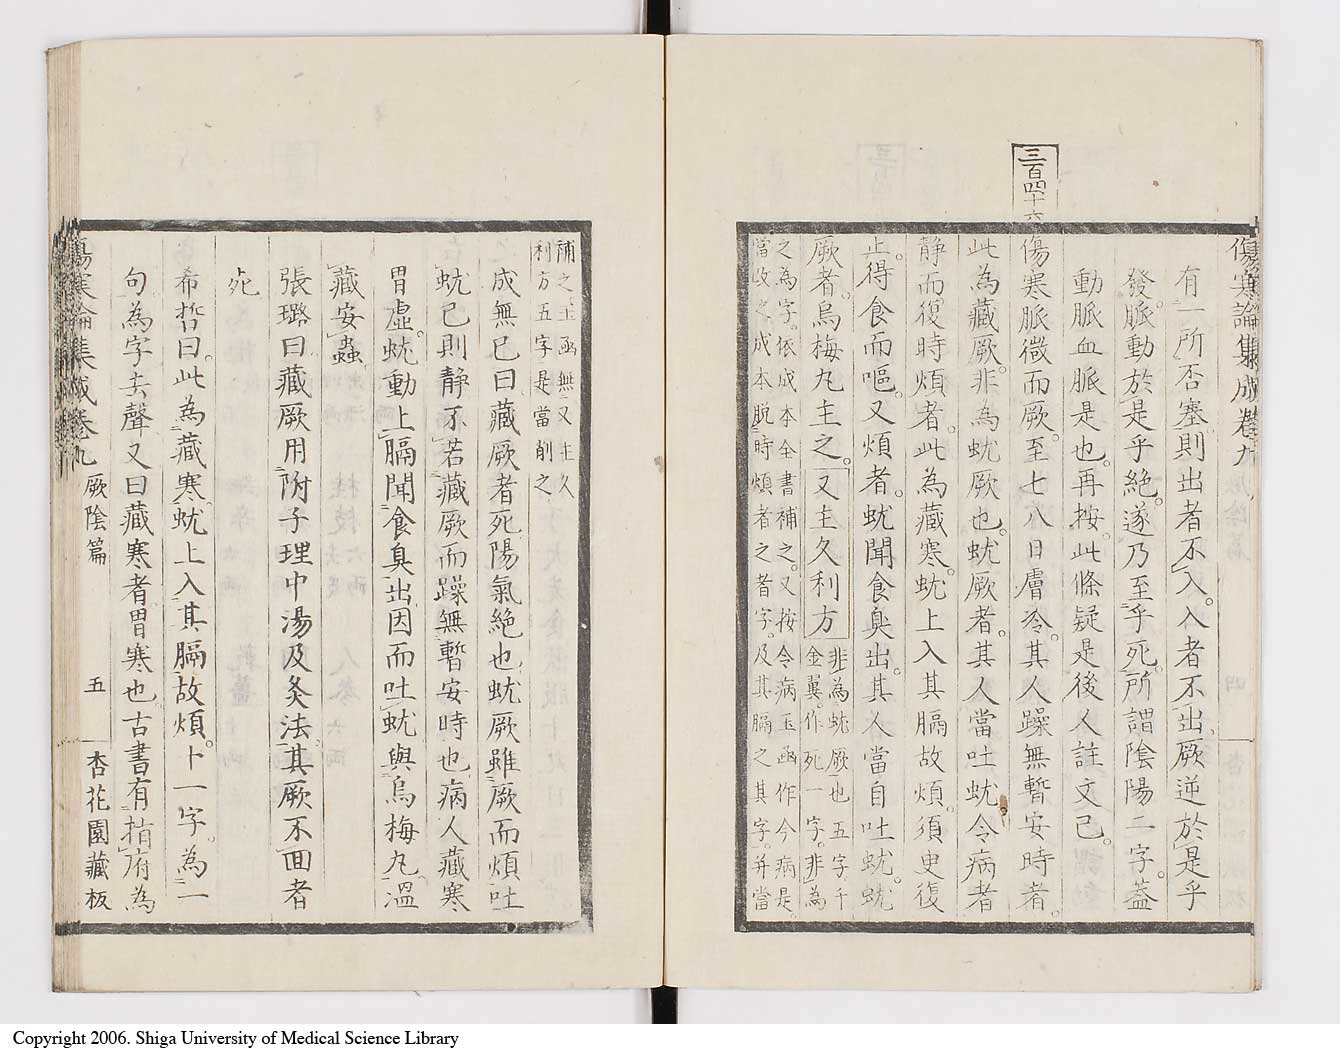 傷寒論集成卷九
有一所否塞則出者不入入者不出厥逆於是乎
發脈動於是乎絕遂乃至乎死所謂陰陽二字蓋
動脈血脈是也再按此條疑是後人註文已
三百四十六
傷寒脈微而厥至七八日膚冷其人躁無暫安時者
此為藏厥非為蚘厥也蚘厥者其人當吐蚘令病者
靜而復時煩者此為藏寒蚘上入其膈故煩須臾復
止得食而嘔又煩者蚘聞食臭出其人當自吐蚘蚘
厥者烏梅丸主之又主久利方
非為蚘厥也五字千
金翼作死一字非為
之為字依成本全書補之又按令病玉函作今病是
當改之成本脫時煩者之者字及其膈之其字并當
補之玉函無又主久
利方五字是當削之
成無已曰藏厥者死陽氣絕也蚘厥雖厥而煩吐
蚘已則靜不若藏厥而躁無暫安時也病人藏寒
胃虛蚘動上膈聞食臭出因而吐蚘與烏梅丸溫
藏安蟲
張璐曰藏厥用附子理中湯及灸法其厥不回者
死
希哲曰此為藏寒蚘上入其膈故煩十一字為一
句為字去聲又曰藏寒者胃寒也古書有指府為
傷寒論集成卷九 厥陰篇 五 杏花園藏板
Copyright 2006. Shiga University of Medical Science Library